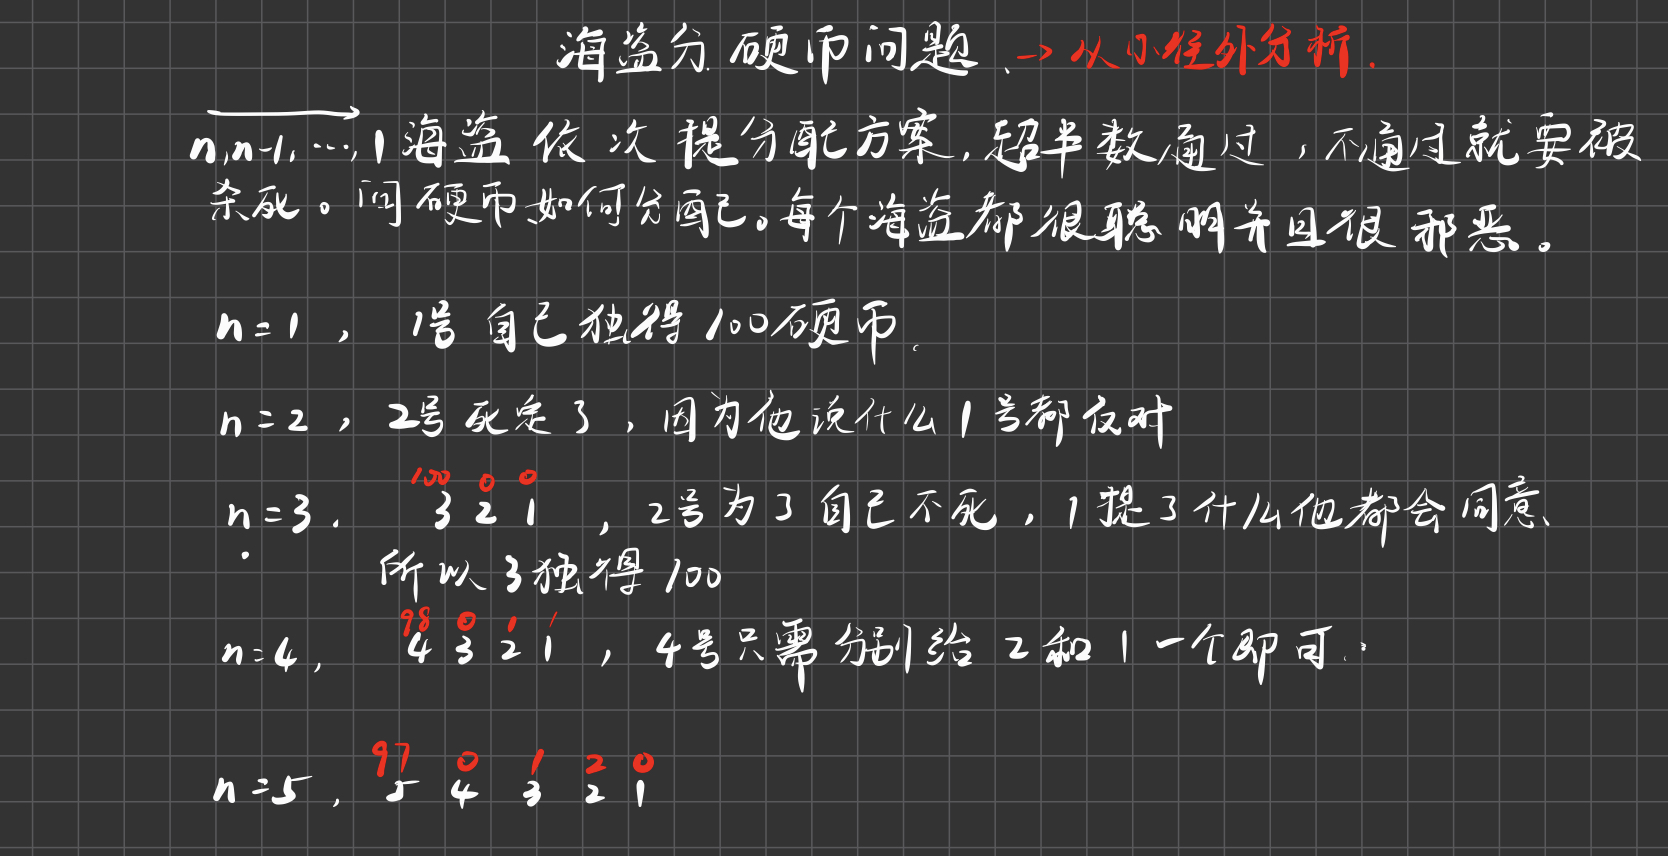 海盗分硬币问题、→从小往外分析.
n,n-1,…,1海盗依次提分配方案,超半数通过,不通过就要被
杀死。问硬币如何分配。每个海盗都很聪明并且很邪恶。
n=1, 1号自己独得100硬币.
n=2, 2号死定了,因为他说什么1号都反对
100 0 0
n=3. 3 2 1 ,2号为了自己不死,1提了什么他都会同意、
所以3独得100
98 0 1 1
n=4, 4 3 2 1 ,4号只需分别给2和1一个即可.
97 0 1 2 0
n=5, 5 4 3 2 1